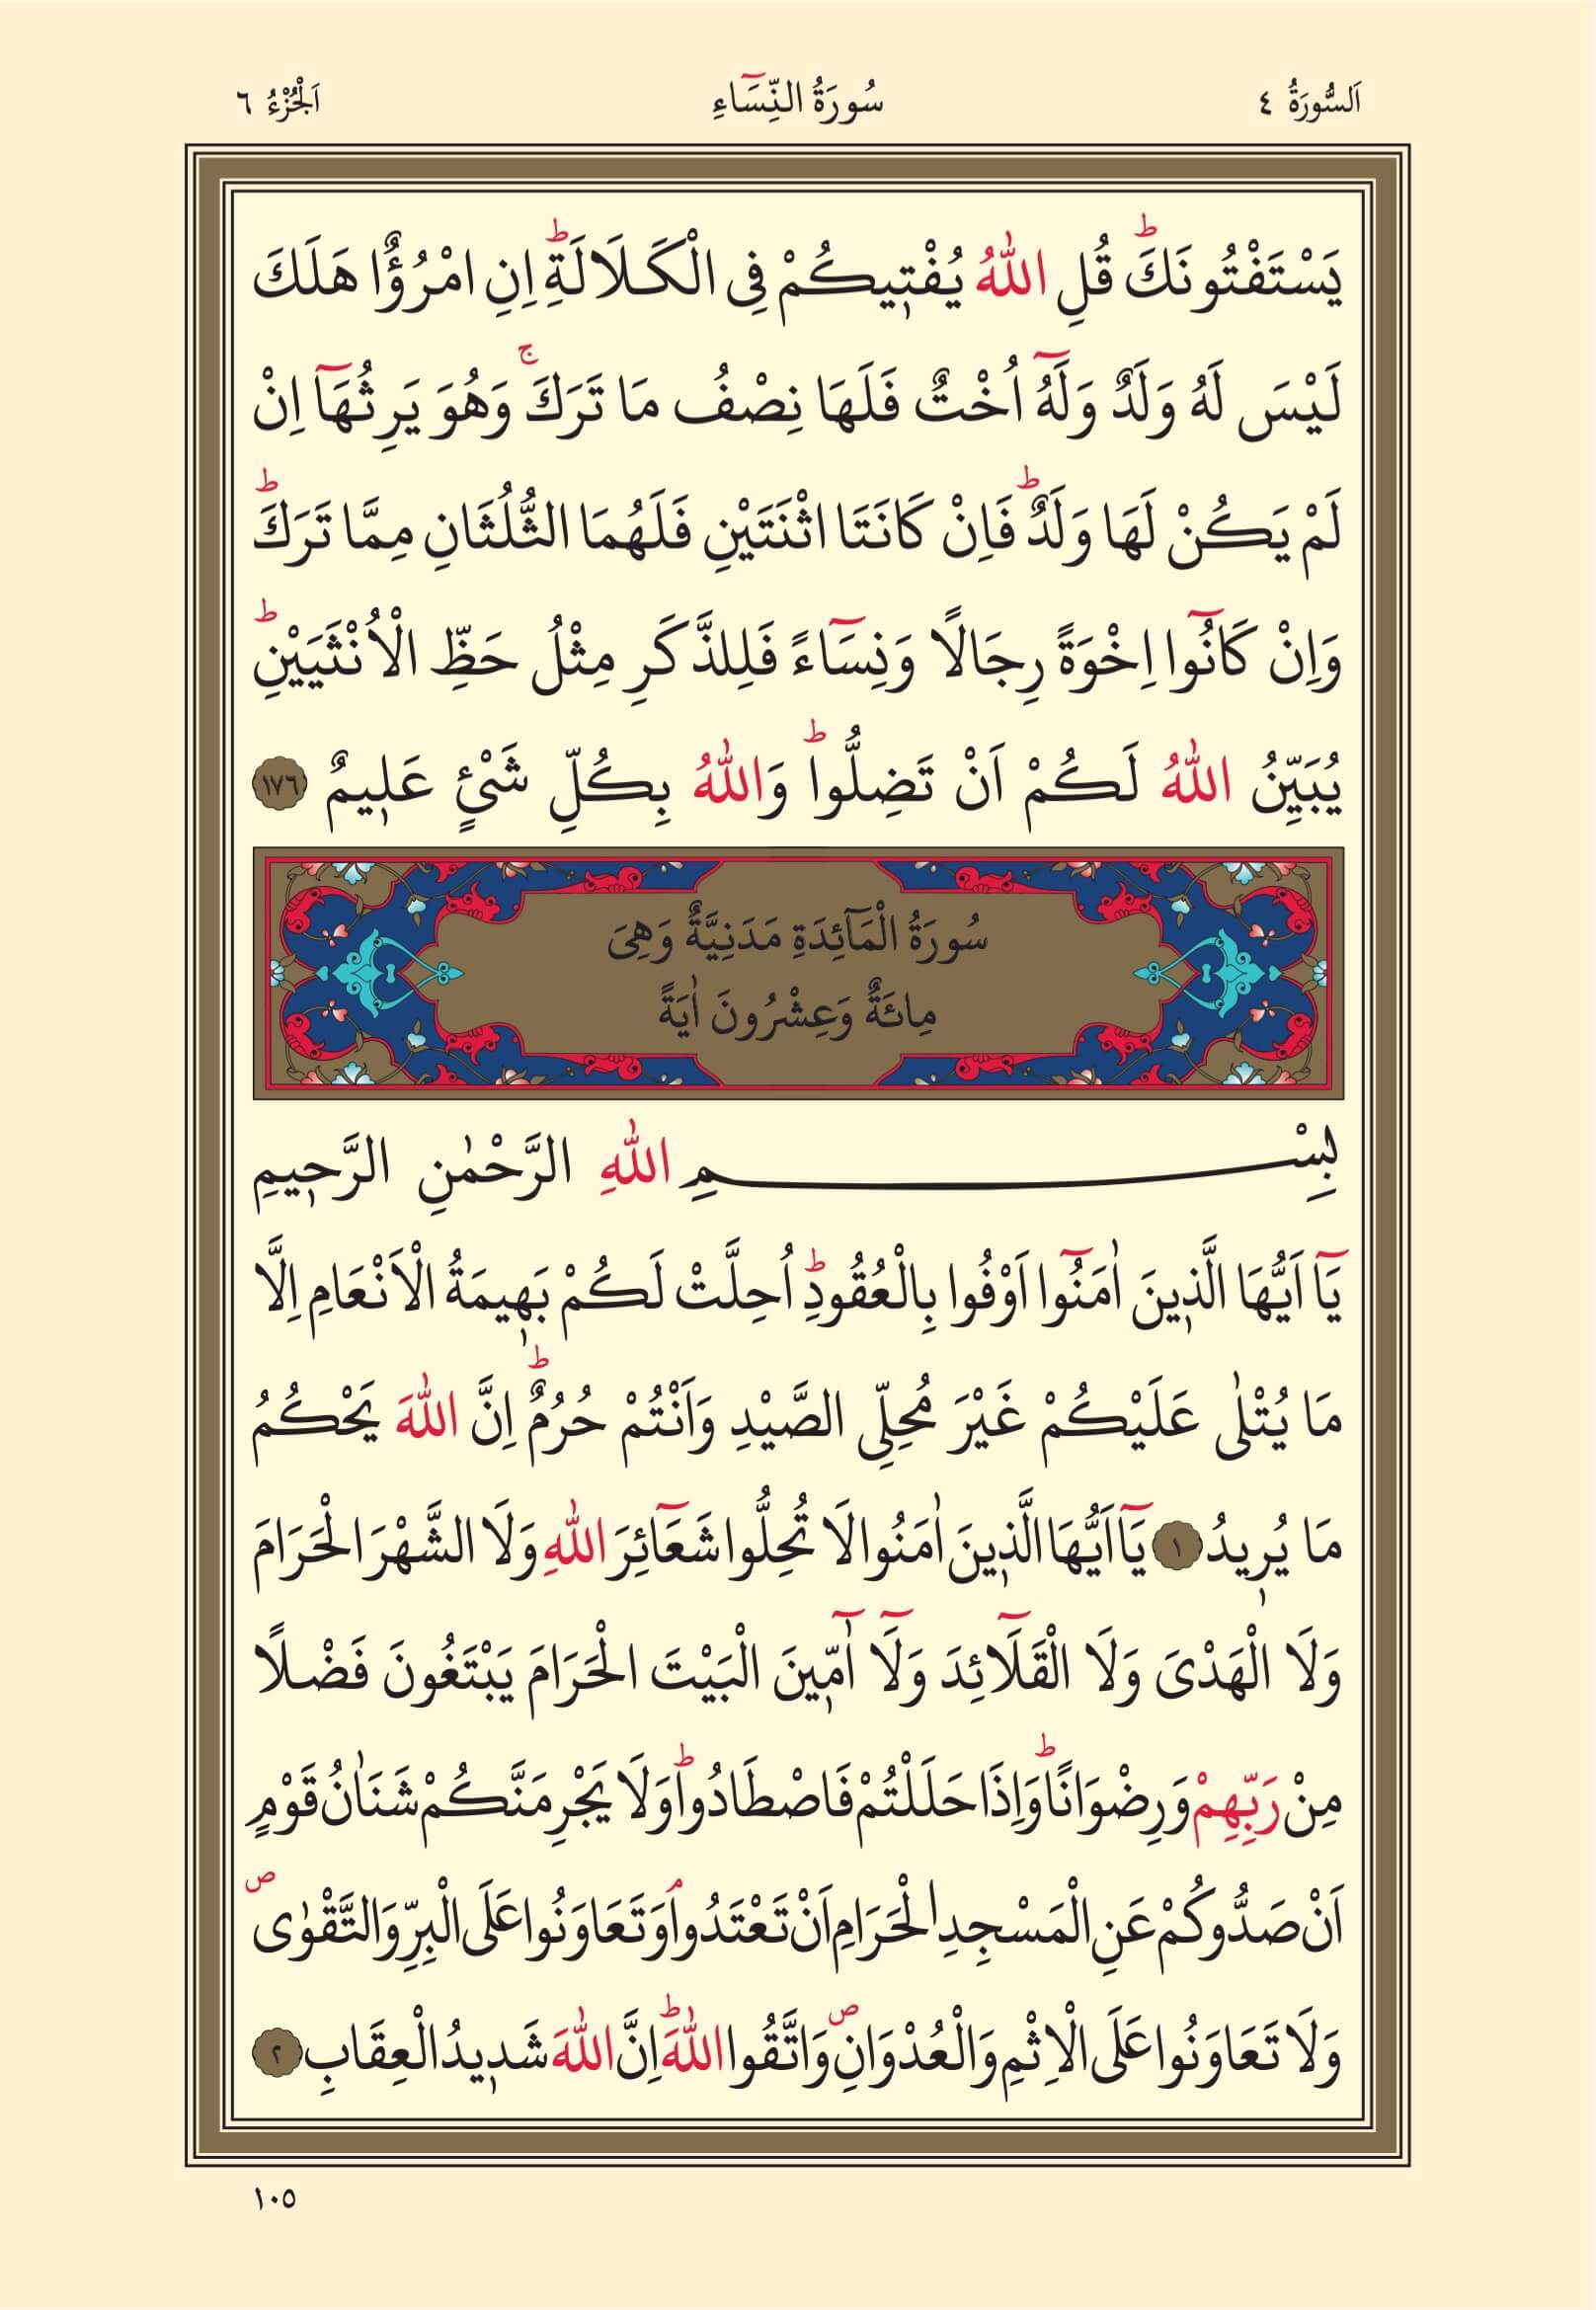 اَلسُّورَةُ ٤ سُورَةُ النِّسَٓاءِ اَلْجُزْءُ ٦
يَسْتَفْتُونَكَۜ قُلِ اللّٰهُ يُفْتٖيكُمْ فِى الْكَلَالَةِۜ اِنِ امْرُؤٌا هَلَكَ
لَيْسَ لَهُ وَلَدٌ وَلَهُٓ اُخْتٌ فَلَهَا نِصْفُ مَا تَرَكَۚ وَهُوَ يَرِثُهَٓا اِنْ
لَمْ يَكُنْ لَهَا وَلَدٌۜ فَاِنْ كَانَتَا اثْنَتَيْنِ فَلَهُمَا الثُّلُثَانِ مِمَّا تَرَكَۜ
وَاِنْ كَانُٓوا اِخْوَةً رِجَالًا وَنِسَٓاءً فَلِلذَّكَرِ مِثْلُ حَظِّ الْاُنْثَيَيْنِۜ
يُبَيِّنُ اللّٰهُ لَكُمْ اَنْ تَضِلُّواۜ وَاللّٰهُ بِكُلِّ شَىْءٍ عَلٖيمٌ ١٧٦
سُورَةُ الْمَٓائِدَةِ مَدَنِيَّةٌ وَهِىَ
مِائَةٌ وَعِشْرُونَ اٰيَةً
بِسْمِ اللّٰهِ الرَّحْمٰنِ الرَّحٖيمِ
يَٓا اَيُّهَا الَّذٖينَ اٰمَنُٓوا اَوْفُوا بِالْعُقُودِۜ اُحِلَّتْ لَكُمْ بَهٖيمَةُ الْاَنْعَامِ اِلَّا
مَا يُتْلٰى عَلَيْكُمْ غَيْرَ مُحِلِّى الصَّيْدِ وَاَنْتُمْ حُرُمٌۜ اِنَّ اللّٰهَ يَحْكُمُ
مَا يُرٖيدُ ١ يَٓا اَيُّهَا الَّذٖينَ اٰمَنُوا لَا تُحِلُّوا شَعَٓائِرَ اللّٰهِ وَلَا الشَّهْرَ الْحَرَامَ
وَلَا الْهَدْىَ وَلَا الْقَلَٓائِدَ وَلَٓا آٰمّٖينَ الْبَيْتَ الْحَرَامَ يَبْتَغُونَ فَضْلًا
مِنْ رَبِّهِمْ وَرِضْوَانًاۜ وَاِذَا حَلَلْتُمْ فَاصْطَادُواۜ وَلَا يَجْرِمَنَّكُمْ شَنَاٰنُ قَوْمٍ
اَنْ صَدُّوكُمْ عَنِ الْمَسْجِدِ الْحَرَامِ اَنْ تَعْتَدُواۢ وَتَعَاوَنُوا عَلَى الْبِرِّ وَالتَّقْوٰىࣕ
وَلَا تَعَاوَنُوا عَلَى الْاِثْمِ وَالْعُدْوَانِࣕ وَاتَّقُوا اللّٰهَۜ اِنَّ اللّٰهَ شَدٖيدُ الْعِقَابِ ٢
١٠٥